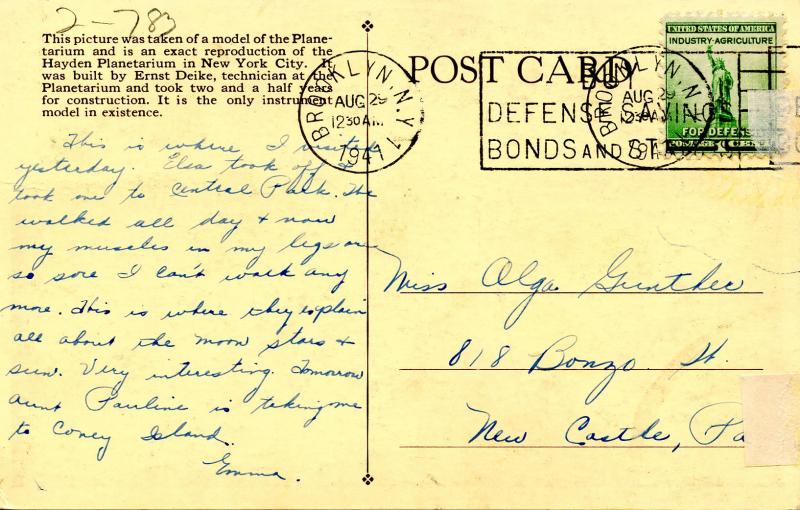 2-783
This picture was taken of a model of the Plane-
tarium and is an exact reproduction of the
Hayden Planetarium in New York City. It
was built by Ernst Deike, technician at the
Planetarium and took two and a half years
for construction. It is the only instrument
model in existence.
This is where I visited
yesterday. Elsa took off &
took me to Central Park. We
walked all day & now
my muscles in my legs are
so sore I can't walk any
more. This is where they explain
all about the moon stars &
sun. Very interesting. Tomorrow
Aunt Pauline is taking me
to Coney Island.
Emma.
POST CARD
BROOKLYN, N.Y. 1
AUG 29
12 30 AM
1941
BUY
DEFENSE SAVINGS
BONDS AND STAMPS
BROOKLYN, N.Y.
AUG 29
12 30 AM
1941
UNITED STATES OF AMERICA
INDUSTRY·AGRICULTURE
FOR DEFENSE
POSTAGE 1 CENT
Miss Olga Gunther
818 Bonzo St.
New Castle, Pa